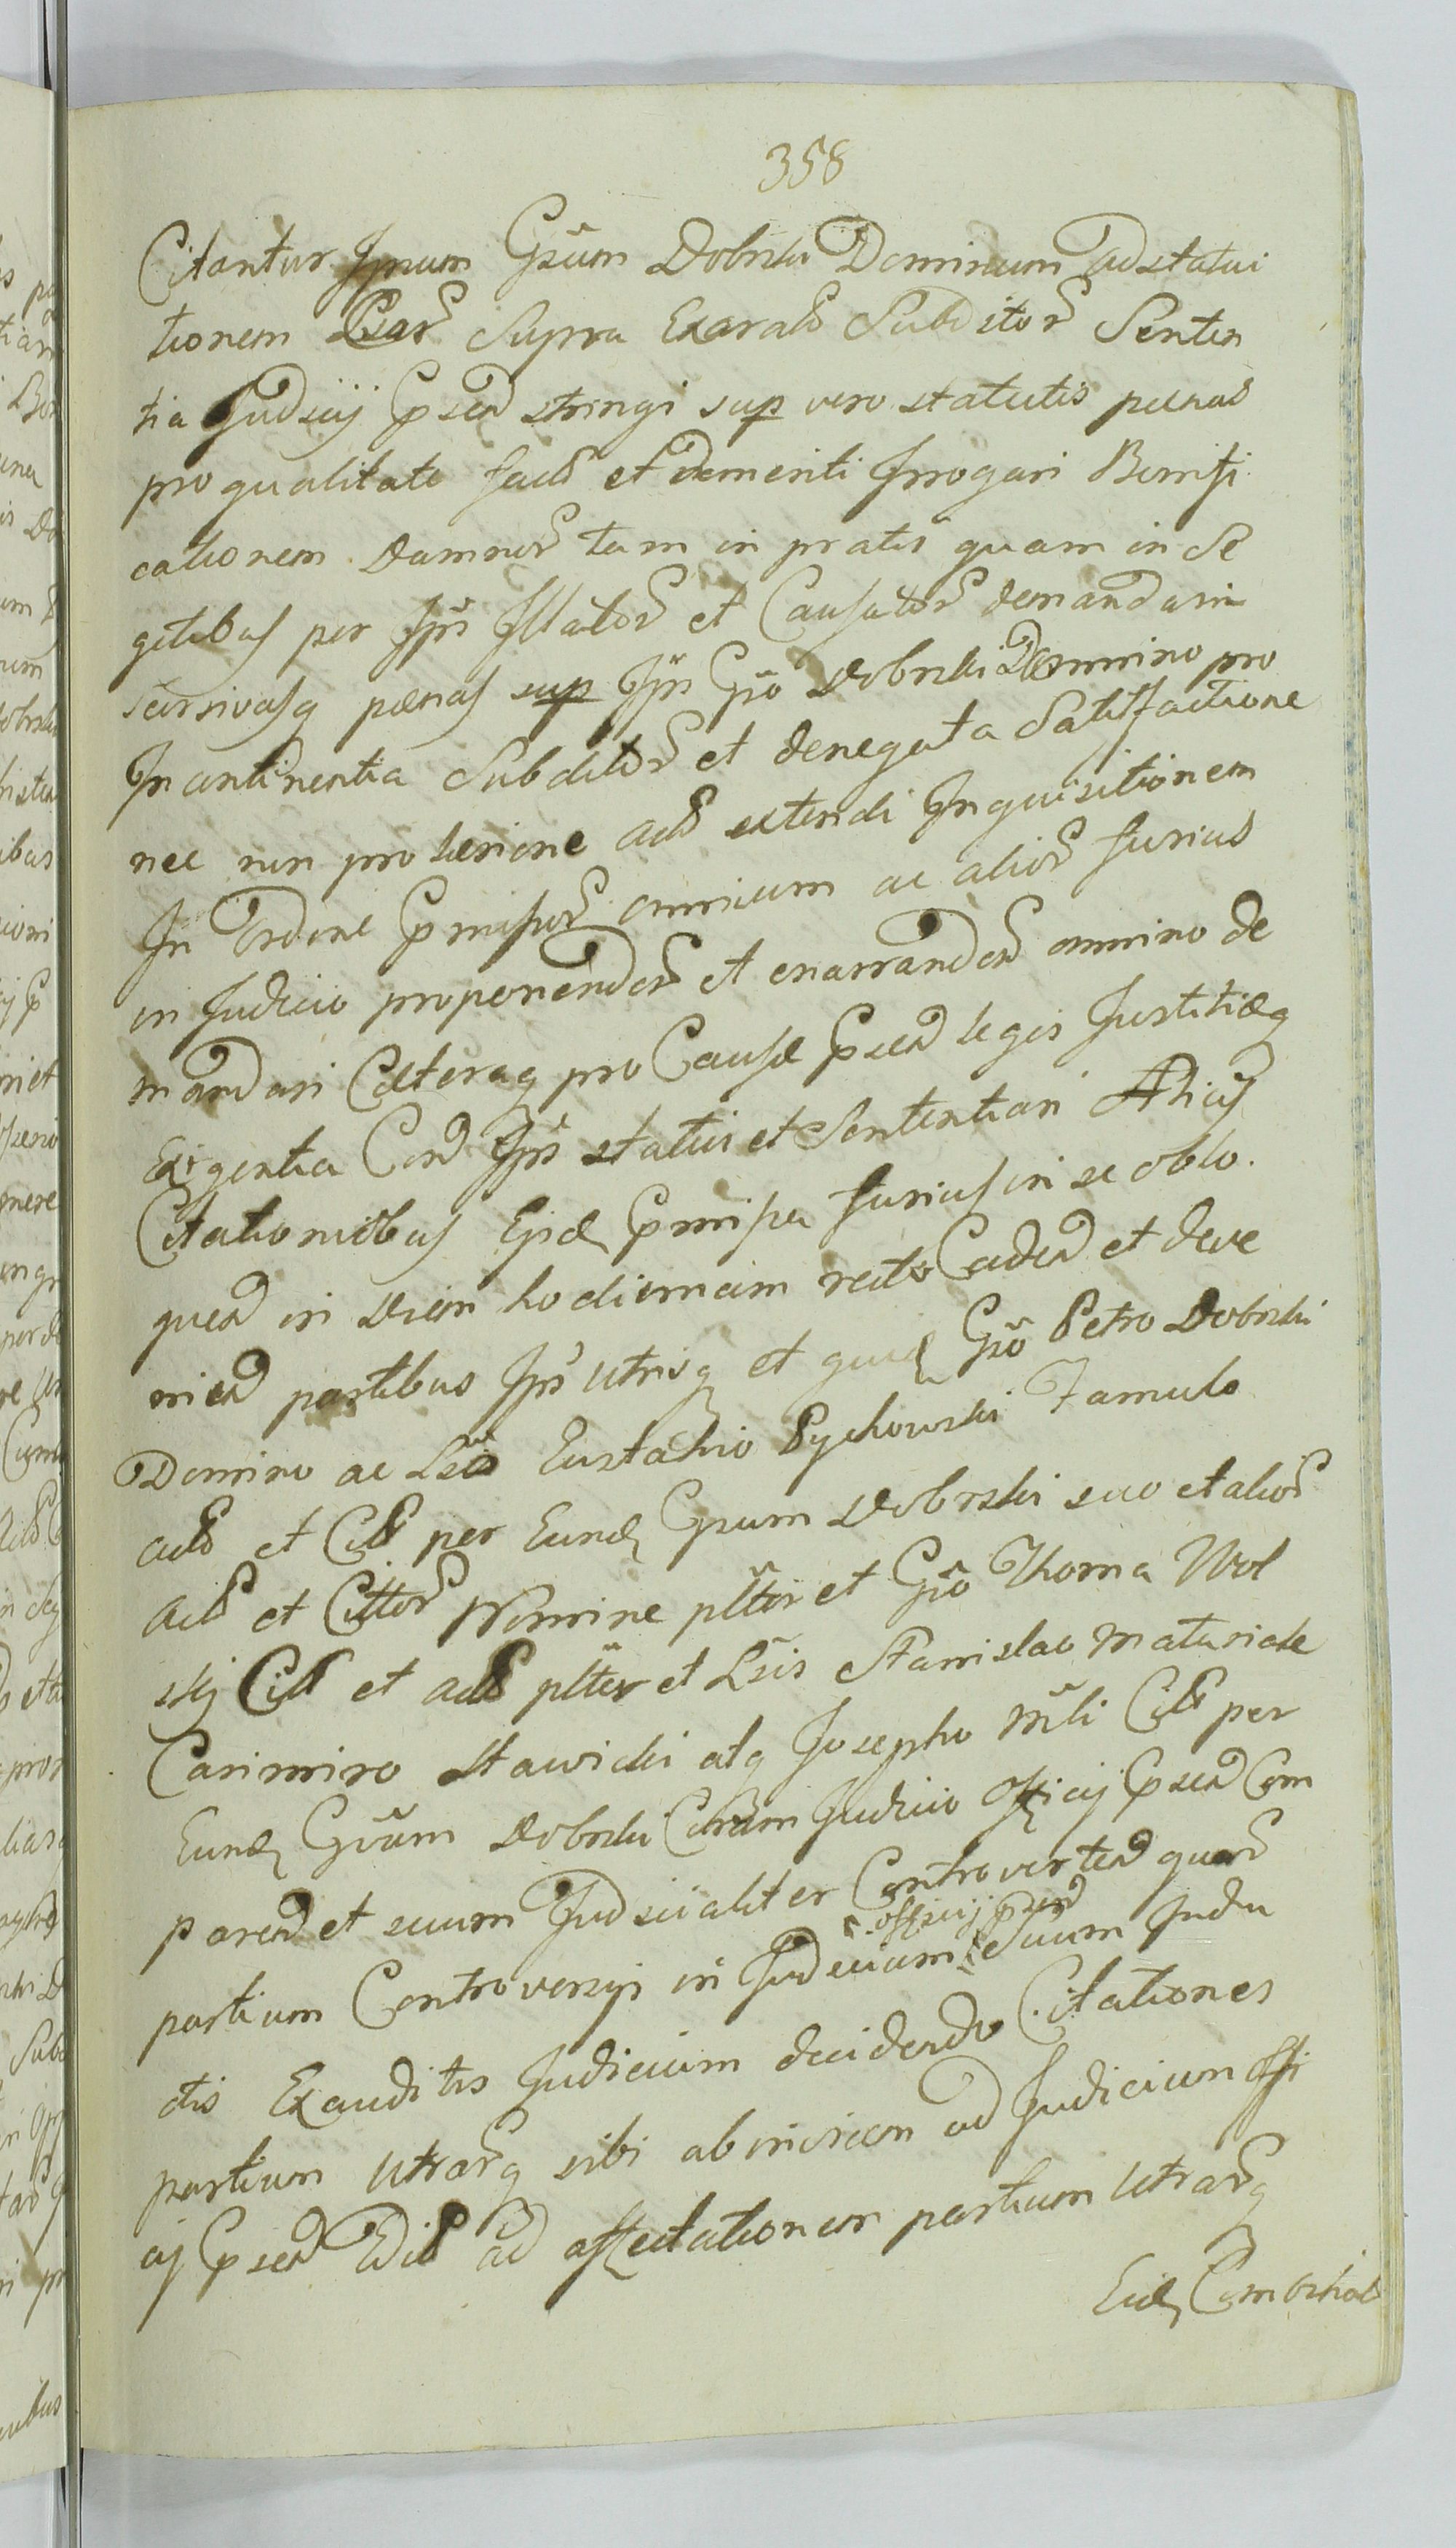 358
Citantur Ipsum Gsum Dobrski Dominum ad statui
tionem Lsar Supra Exarat Subditor Senten
tia Judicij Psend stringi sup vero statutis pænas
pro qualitate facti et demeriti Irrogari Bonifi
cationem Damnor tam in pratis quam in Se
getibus per Ips Illator et Causator demandari
pænas sup Ips Gso Dobrski Domino pro
Incontinentia Subditor et denegata Satisfactione
nec non pro læsione extendi Inquisitionem
In Ordine Pmissor omnium ac alior fusius
in Judicio proponendor et enarrandor omnino de
mandari Cæteraq pro Causæ Psend legis Justitiæq
Exigentia Cond Ips statui et Sententiari Alijs
Citationibus Ejsd Pmissa fusius in se oblo
quend in Diem hodiernam recte Caden et deve
nien partibus Ips utrisq et quid Gso Petro Dobrski
Domino ac Lso Eustahio Pychowski Famulo
act et Citt per Eund Gsum Dobrski suo et alior
act et Cittor Nomine plter et Gso Thoma Wol
skij Citt et act plter et Lsis Stanislao Matusiak
Casimiro Stawicki atq Josepho Citt per
Eund Gsum Dobrski Coram Judicio Officij Psend Com
paren et suum Judicialiter Controverten quar
officij psend
partium Controversijs in Judicium Suum Indu
ctis Exauditis Judicium decidendo Citationes
partium utrarq sibi abinvicem ad Judicium Offi
cij Psend Edit ad affectationem partium utrarq
Eisd